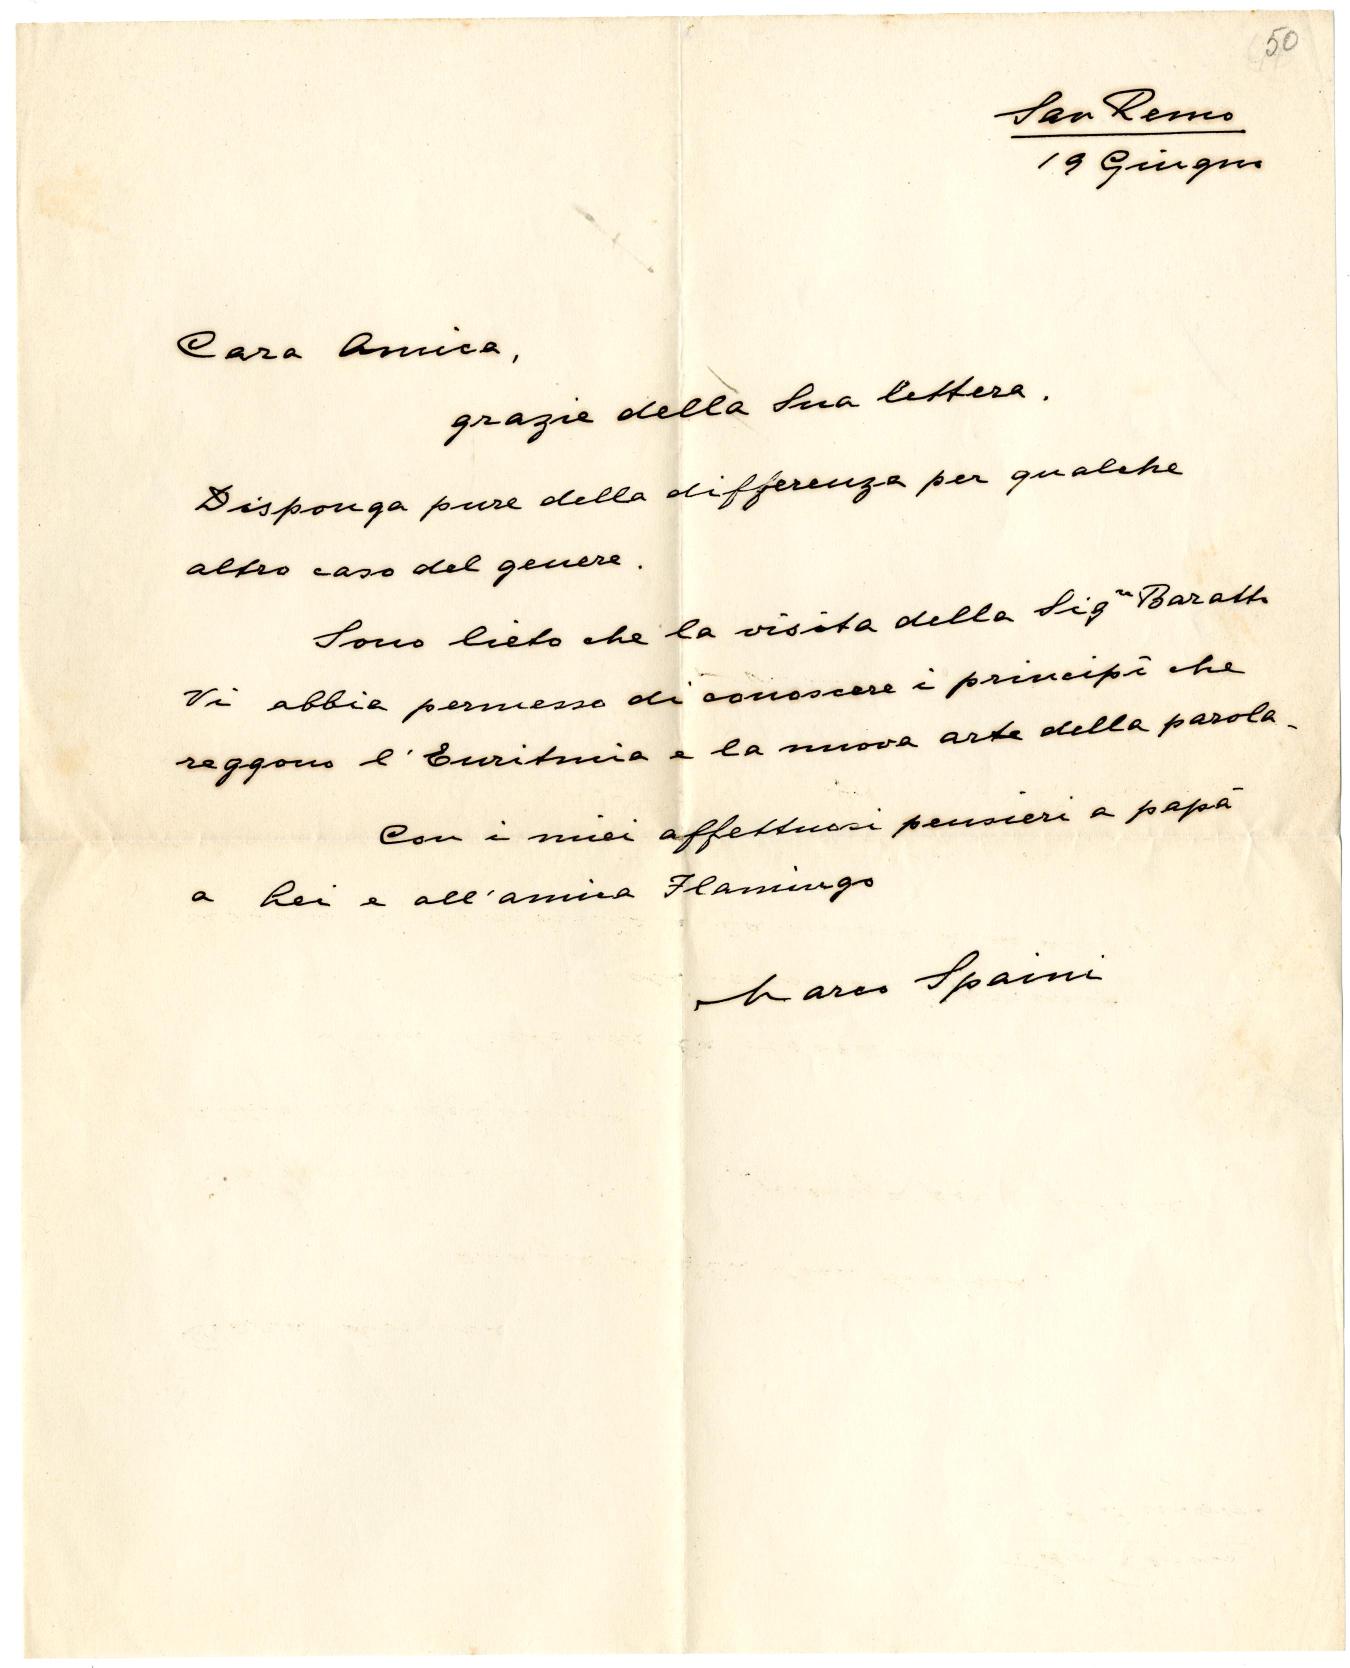 50
San Remo
19 Giugno
Cara Amica,
grazie della Sua lettera.
Disponga pure della differenza per qualche
altro caso del genere.
Sono lieto che la visita della Sigra Baratto
Vi abbia permesso di conoscere i principî che
reggono l'Euritmia e la nuova arte della parola.
Con i miei affettuosi pensieri a papà
a Lei e all'amica Flamingo
Marco Spaini